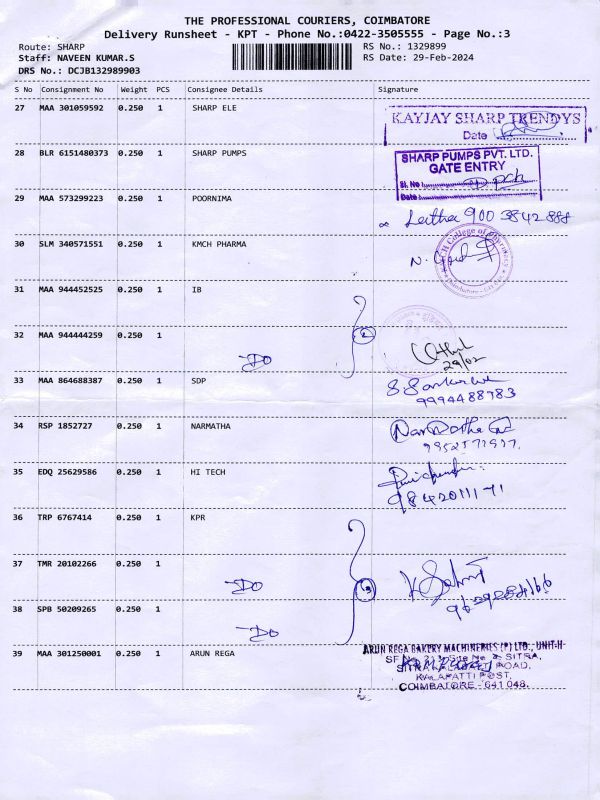 THE PROFESSIONAL COURIERS, COIMBATORE
Delivery Runsheet - KPT - Phone No.:0422-3505555 - Page No.:3
Route: SHARP
RS No.: 1329899
Staff: NAVEEN KUMAR.S
RS Date: 29-Feb-2024
DRS No.: DCJB132989903
S No Consignment No Weight PCS Consignee Details Signature
27 MAA 301059592 0.250 1 SHARP ELE
KAYJAY SHARP TRENDYS
Date
28 BLR 6151480373 0.250 1 SHARP PUMPS
SHARP PUMPS PVT. LTD.
GATE ENTRY
Sl. No
Date
29 MAA 573299223 0.250 1 POORNIMA
Laitha 900 3842 888
30 SLM 340571551 0.250 1 KMCH PHARMA
31 MAA 944452525 0.250 1 IB
32 MAA 944444259 0.250 1
DO
2
29/02
33 MAA 864688387 0.250 1 SDP
9994488783
34 RSP 1852727 0.250 1 NARMATHA
35 EDQ 25629586 0.250 1 HI TECH
9842011171
36 TRP 6767414 0.250 1 KPR
37 TMR 20102266 0.250 1
DO
3
38 SPB 50209265 0.250 1
DO
39 MAA 301250001 0.250 1 ARUN REGA
ARUN REGA BAKERY MACHINERIES (P) LTD., UNIT-II
SITRA,
ROAD,
KALAPATTI POST,
COIMBATORE - 641 048.